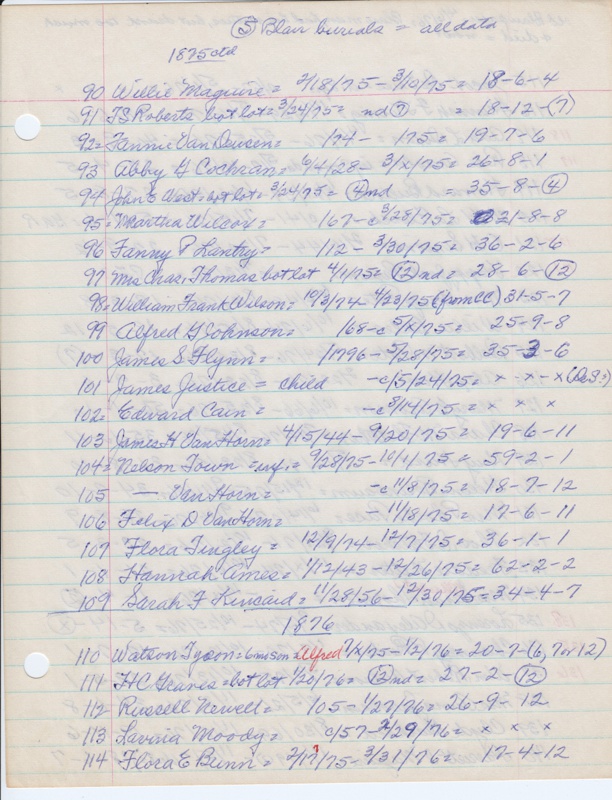 ⑤ Blair burials = all data
1875 ctd
90 Willie Maguire = 2/18/75 - 3/10/75 = 18-6-4
91 TS Roberts bot lot = 3/24/75 = nd ⑦ = 18-12-⑦
92 = Fannie Van Deusen = 174 - 175 = 19-7-6
93 Abby G Cochran = 6/4/28 - 3/x/75 = 26-8-1
94 John E West = bot lot = 3/24/75 = ④nd = 35-8-④
95 = Martha Wilcox = 167 - c3/28/75 = 21-8-8
96 Fanny P Lantry = 112 - 3/30/75 = 36-2-6
97 Mrs Chas. Thomas bot lot 4/1/75 = ⑫ nd = 28-6-⑫
98 = William Frank Wilson = 10/3/74 - 4/23/75 (from CC) 31-5-7
99 Alfred G Johnson = 168 - c5/x/75 = 25-9-8
100 James S Flynn = 1796 - 5/28/75 = 35-3-6
101 James Justice = child - c/5/24/75 = x - x - x (Des?)
102 = Edward Cain = - c8/14/75 = x x x
103 James H Van Horn = 4/15/44 - 9/20/75 = 19-6-11
104 = Nelson Town = inf. = 9/28/75 - 10/1/75 = 59-2-1
105 — Van Horn = - c11/8/75 = 18-7-12
106 Felix D Van Horn = - 11/18/75 = 17-6-11
107 Flora Tingley = 12/9/74 - 12/7/75 = 36-1-1
108 Hannah Ames = 1/12/43 - 12/26/75 = 62-2-2
109 Sarah F Kincaid = 11/28/56 - 12/30/75 = 34-4-7
1876
110 Watson Tyson = 6m son = Alfred 7/x/75 - 1/2/76 = 20-7-(6, 7 or 12)
111 HC Graves = bot lot 1/20/76 = ⑫nd = 27-2-⑫
112 Russell Newell = 105 - 1/27/76 = 26-9-12
113 Lavaria Moody = c/57 - 2/29/76 = x x x
114 Flora E Bunn = 2/17/75 - 3/31/76 = 17-4-12